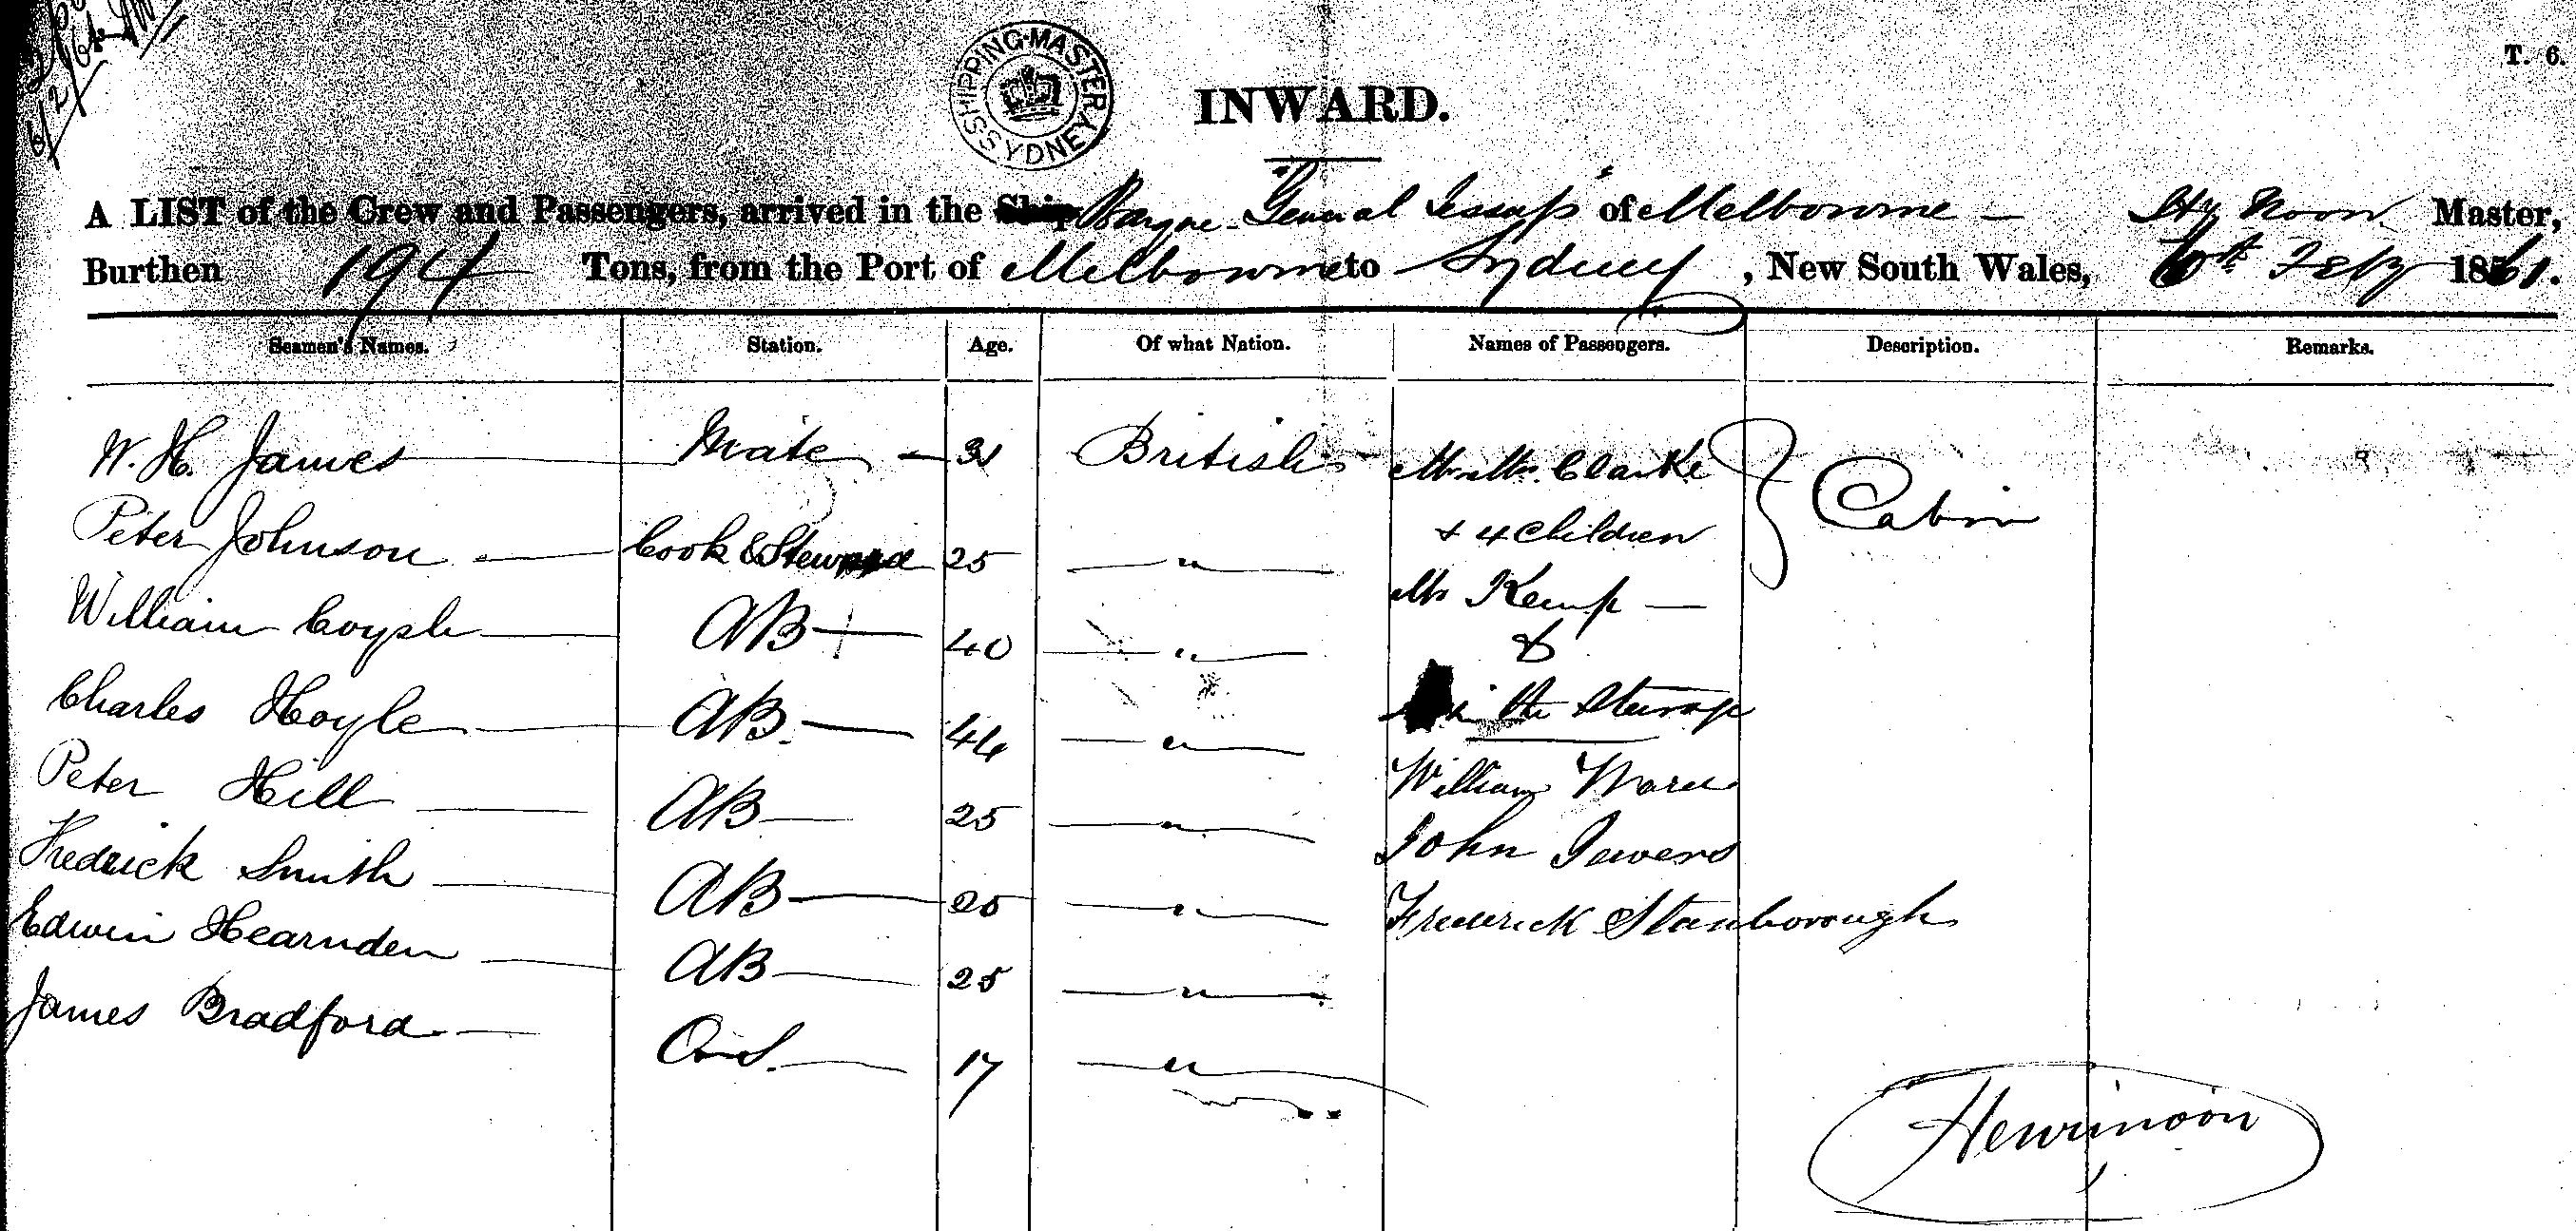 T. 6.
SHIPPING MASTER SYDNEY
INWARD.
A LIST of the Crew and Passengers, arrived in the Ship Barque "General Jessup" of Melbourne — Hy Moon Master,
Burthen 194 Tons, from the Port of Melbourne to Sydney, New South Wales, Feby 1861.
Seamen's Names. Station. Age. Of what Nation. Names of Passengers. Description. Remarks.
W. H. James Mate 31 British Mr Mrs. Clarke Cabin
+ 4 Children
Peter Johnson Cook & Steward 25 "
Mr Kemp
William Coysh AB 40 "
&
Charles Hoyle AB 44 " in the Steerage
Peter Hill AB 25 " William Ware
John Jewers
Fredrick Smith AB 25 " Frederick Stanborough
Edwin Hearnden AB 25 "
James Bradford O.S. 17 "
Henry Moon